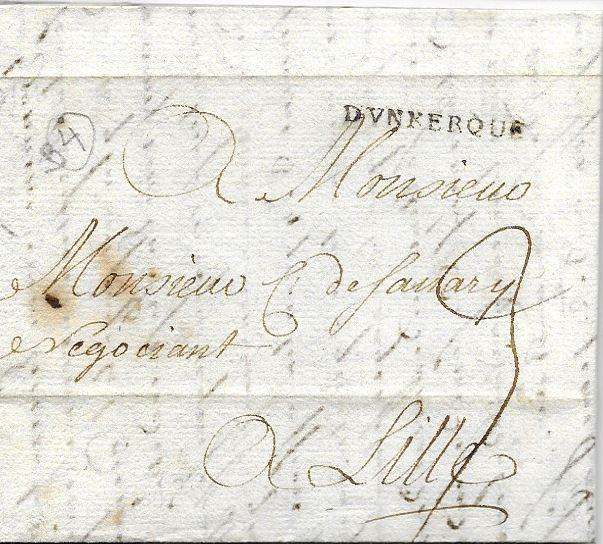 DVNKERQUE
A Monsieur
Monsieur C. de
Negociant
A Lille